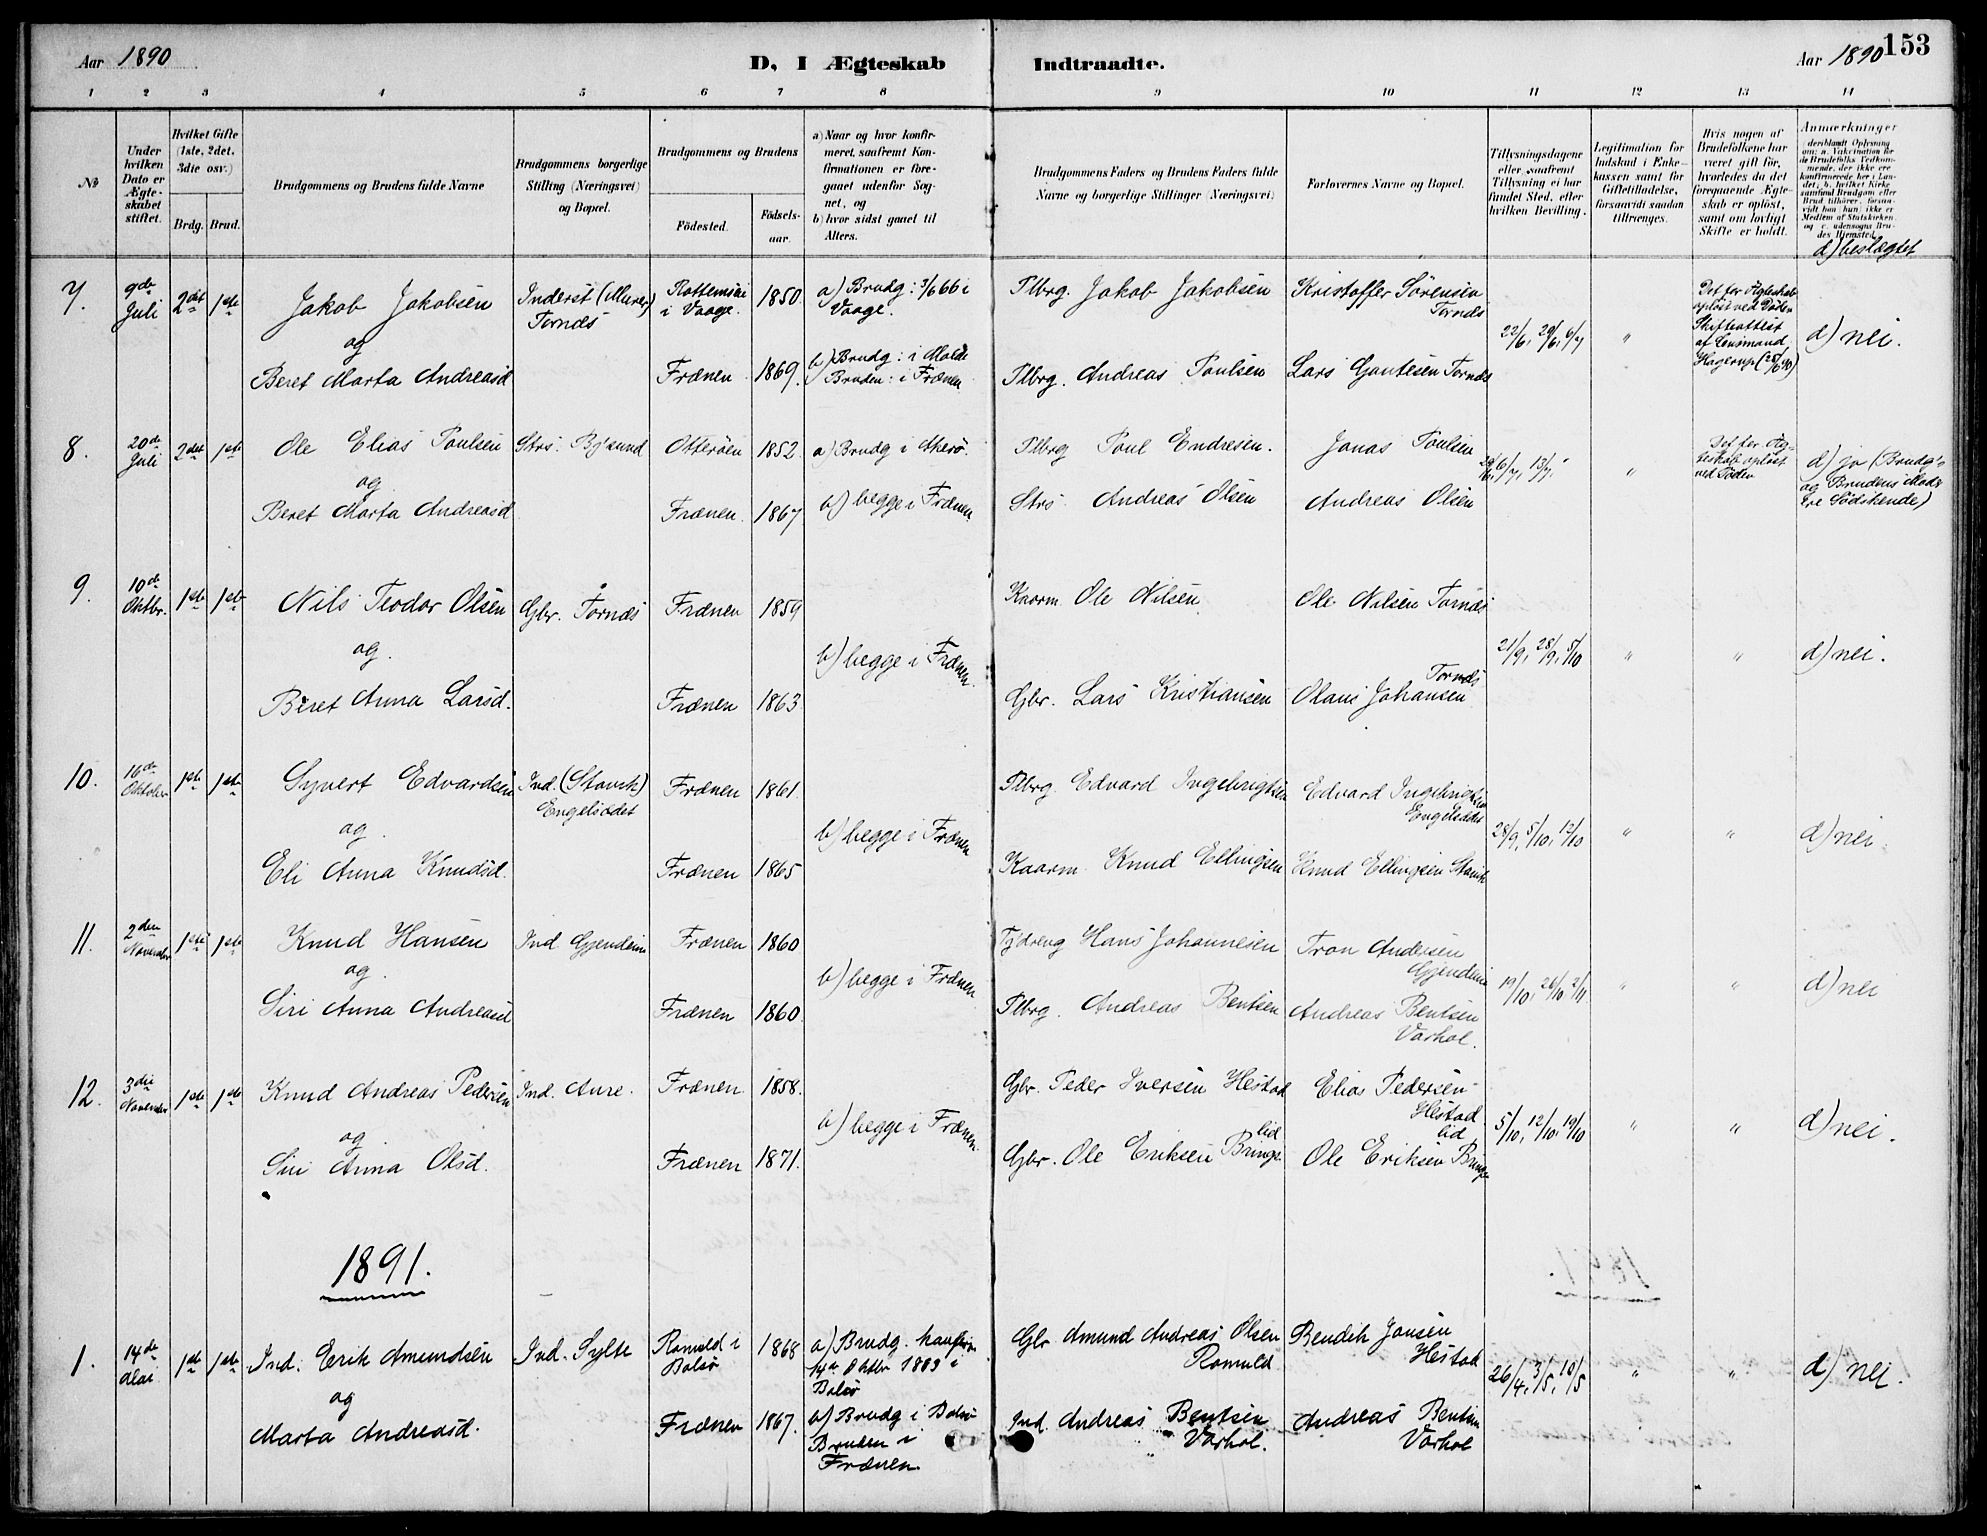 Aar 1890
D, I Ægteskab
Indtraadte.
Aar 1890
153
1 2 3 4 5 6 7 8 9 10 11 12 13 14
No
Under hvilken Dato er Ægteskabet stiftet.
Hvilket Gifte (1ste, 2det, 3die osv.)
Brdg. Brud.
Brudgommens og Brudens fulde Navne
Brudgommens borgerlige Stilling (Næringsvei) og Bopæl.
Brudgommens og Brudens
Födested.
Födselsaar.
a) Naar og hvor konfirmeret, saafremt Konfirmationen er foregaaet udenfor Sognet, og
b) hvor sidst gaaet til Alters.
Brudgommens Faders og Brudens Faders fulde Navne og borgerlige Stillinger (Næringsvei)
Forlovernes Navne og Bopæl.
Tillysningsdagene eller, saafremt Tillysning ei har fundet Sted, efter hvilken Bevilling.
Legitimation for Indskud i Enkekassen samt for Giftetilladelse, forsaavidt saadan tiltrænges.
Hvis nogen af Brudefolkene har været gift för, hvorledes da det foregaaende Ægteskab er oplöst, samt om lovligt Skifte er holdt.
Anmærkninger (deriblandt Oplysning om: a. Vakcination for de Brudefolks Vedkommende, der ikke ere konfirmerede her i Landet; b. hvilket Kirkesamfund Brudgom eller Brud tilhører, forsaavidt han (hun) ikke er Medlem af Statskirken, og c. udensogns Brudes Hjemsted.)
d) beslægtet
7. 9de Juli 2det 1ste Jakob Jakobsen Inderst (Murer) Tornæs i Vaage. 1850 a) Brudg: i Vaage. Plbrg. Jakob Jakobsen Kristoffer Sörensen Tornæs
og
22/6, 29/6, 6/7 " Det før. Ægteskab opløst ved Døden Skifteattest af Lensmand Hagerup d) nei.
Beret Marta Andreasd Frænen 1869. b) Brudg: i Molde Bruden: i Frænen Plbrg. Andreas Poulsen Lars Gautesen Tornæs
8. 20de Juli 2det 1ste Ole Elias Poulsen Strs. Bysund Otteröen 1852. a) Brudg i Akerö. Plbrg Poul Endresen. Jonas Poulsen
og
29/6, 6/7, 13/7 " Det før. Ægteskab opløst ved Døden d) ja (Brudg's og Brudens Mødre ere Sødskende)
Beret Marta Andreasd Frænen. 1867 b) begge i Frænen Strs Andreas Olsen Andreas Olsen
9. 10de Oktbr. 1ste 1ste Nils Teodor Olsen Gbr. Tornæs Frænen 1859 Kaarm. Ole Nilsen Ole Nilsen Tornæs
og.
b) begge i Frænen. 21/9, 28/9, 5/10 " " d) nei.
Beret Anna Larsd. Frænen 1863 Gbr. Lars Kristiansen Olaus Johansen Tornæs
10. 16de Oktober 1ste 1ste Syvert Edvardsen Ind. (Stavik) Engelsædet Frænen 1861 Plbrg Edvard Ingebrigtsen Edvard Ingebrigtsen Engelsædet
og.
b) begge i Frænen 28/9, 5/10, 12/10 " " d) nei.
Eli Anna Knudsd. Frænen 1865 Kaarm. Knud Ellingsen Knud Ellingsen Stavik
11. 2den November 1ste 1ste Knud Hansen Ind Gjendem Frænen 1860 Tjdreng Hans Johannesen Tron Andersen Gjendem
og.
b) begge i Frænen 19/10, 26/10 2/11 " " d) nei
Siri Anna Andreasd Frænen 1860. Plbrg. Andreas Bentsen Andreas Bentsen Varhol.
12. 3die November 1ste 1ste Knud Andreas Pedersen Ind. Aure. Frænen 1858. Gbr. Peder Iversen Hestad Elias Pedersen Hestad
og
b) begge i Frænen. 5/10, 12/10, 19/10 " " d) nei.
Siri Anna Olsd. Frænen 1871. Gbr. Ole Eriksen Bringslid Ole Eriksen Bringslid
1891.
1. 14de Mai 1ste 1ste Ind. Erik Amundsen Ind. Sylte Romuld i Bolsö 1868 a) Brudg. konfirm 14de Oktbr 1883 i Bolsö Gbr Amund Andreas Olsen Romuld Bendik Jonsen Hestad
og
26/4, 3/5, 10/5 " " d) nei.
Marta Andreasd. Frænen 1867. b) Brudg i Bolsö Bruden i Frænen. Ind. Andreas Bentsen Varhol. Andreas Bentsen Varhol